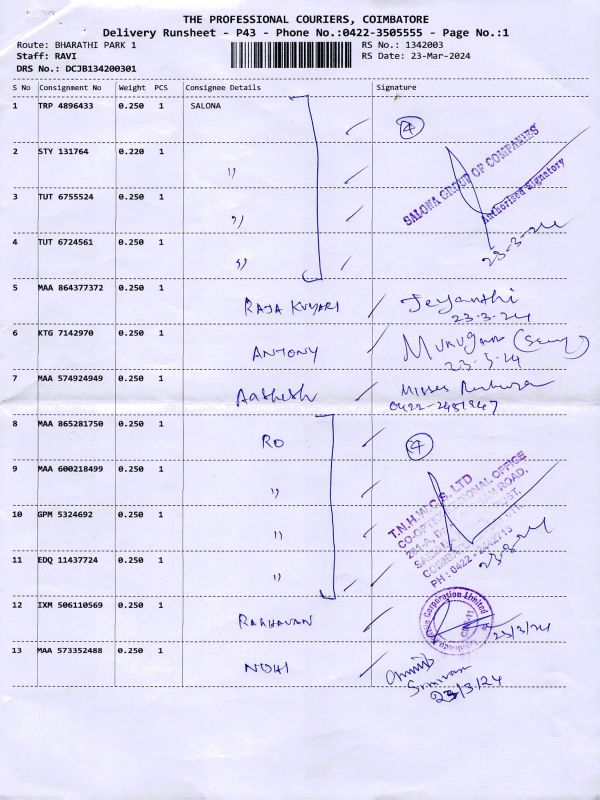 THE PROFESSIONAL COURIERS, COIMBATORE
Delivery Runsheet - P43 - Phone No.:0422-3505555 - Page No.:1
Route: BHARATHI PARK 1 RS No.: 1342003
Staff: RAVI RS Date: 23-Mar-2024
DRS No.: DCJB134200301
S No Consignment No Weight PCS Consignee Details Signature
1 TRP 4896433 0.250 1 SALONA 4
2 STY 131764 0.220 1 ''
SALONA GROUP OF COMPANIES
Authorised Signatory
3 TUT 6755524 0.250 1 ''
4 TUT 6724561 0.250 1 ''
23-3-24
5 MAA 864377372 0.250 1 RAJA KUMARI Jeyanthi
23-3-24
6 KTG 7142970 0.250 1 ANTONY Murugan
23-3-24
7 MAA 574924949 0.250 1 Aathesh Misses
8 MAA 865281750 0.250 1 RO 4
9 MAA 600218499 0.250 1 ''
T.N.H.W.C.S. LTD
10 GPM 5324692 0.250 1 ''
11 EDQ 11437724 0.250 1 ''
12 IXM 506110569 0.250 1 RAGHAVAN
Corporation Limited
23/3/24
13 MAA 573352488 0.250 1
Srinivasan
23/3/24